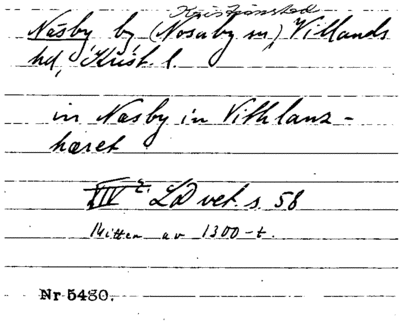 Kristianstad
Näsby by (Nosaby sn), Villands
hd, Krist. l.
in Næsby in Vithlanz-
hæret
XIV 2. LD vet. s. 58
Mitten av 1300-t.
Nr 5480.